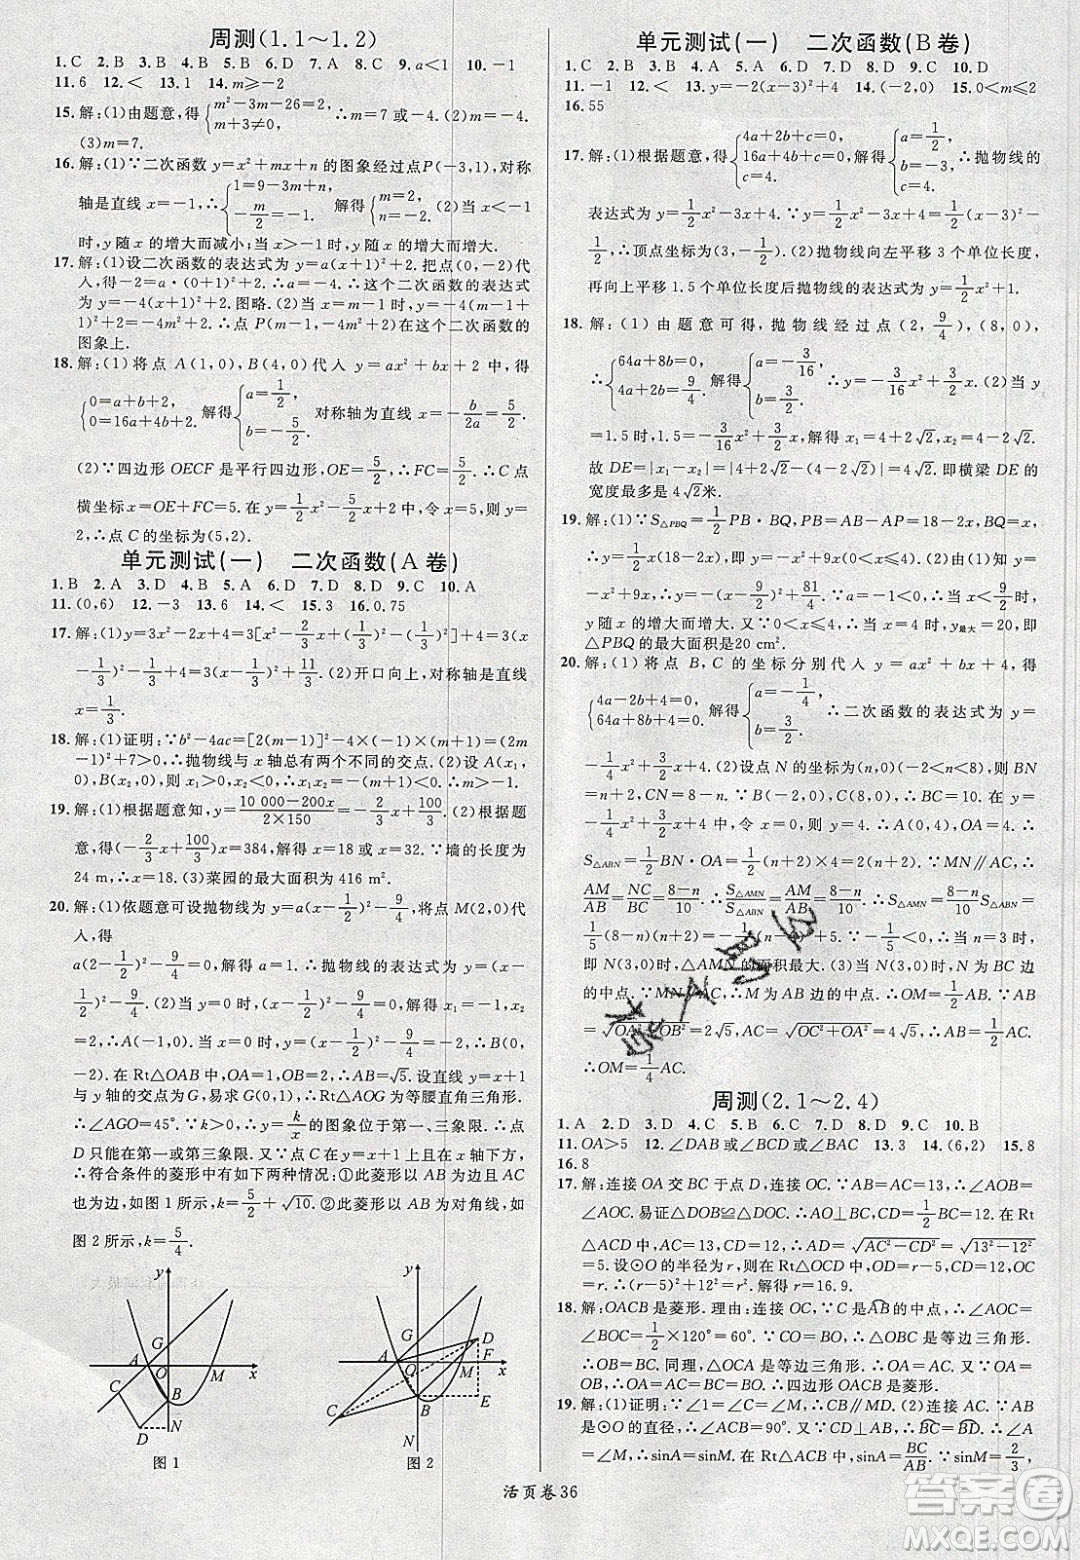 周测(1.1～1.2)
1.C 2.B 3.B 4.B 5.D 6.D 7.A 8.C 9.a<1 10.-1
11.6 12.< 13.1 14.m≥-2
15.解:(1)由题意,得{m²-3m-26=2, m+3≠0. 解得m=7或m=-4.(2)m=-4.
(3)m=7.
16.解:(1)∵二次函数y=x²+mx+n的图象经过点P(-3,1),对称
轴是直线x=-1,∴{1=9-3m+n, -m/2=-1. 解得{m=2, n=-2. (2)当x<-1
时,y随x的增大而减小;当x>-1时,y随x的增大而增大.
17.解:(1)设二次函数的表达式为y=a(x+1)²+2.把点(0,-2)代
入,得-2=a·(0+1)²+2.∴a=-4.∴二次函数的表达式
为y=-4(x+1)²+2.图略.(2)当x=-2时,y=-4(-2+
1)²+2=-2.∴点P(-2,-2)在这个二次函数的
图象上.
18.解:(1)将点A(1,0),B(4,0)代入y=ax²+bx+2中,得
{0=a+b+2, 0=16a+4b+2. 解得{a=1/2, b=-5/2. 对称轴为直线x=-b/2a=5/2.
(2)∵四边形OECF是平行四边形,OE=5/2,∴FC=5/2.∴C点
横坐标x=OE+FC=5.在y=1/2x²-5/2x+2中,令x=5,则y=
2,∴点C的坐标为(5,2).
单元测试(一) 二次函数(A卷)
1.B 2.A 3.D 4.B 5.A 6.D 7.D 8.D 9.C 10.A
11.(0,6) 12.-3 13.6 14.< 15.3 16.0.75
17.解:(1)y=3x²-2x+4=3[x²-2/3x+(1/3)²-(1/3)²]+4=3(x
-1/3)²-1/3+4=3(x-1/3)²+11/3.(2)开口向上,对称轴是直线
x=1/3.
18.解:(1)证明:∵b²-4ac=[2(m-1)]²-4×(-1)×(m+1)=(2m
-1)²+7>0,∴抛物线与x轴总有两个不同的交点.(2)设A(x₁,
0),B(x₂,0),则x₁>0,x₂<0.∴x₁x₂=-(m+1)<0.∴m>-1.
19.解:(1)根据题意知,y=(10 000-200x)/(2×150)=-2/3x+100/3.(2)根据题
意,得(-2/3x+100/3)x=384,解得x=18或x=32.∵墙的长度为
24 m,∴x=18.(3)菜园的最大面积为416 m².
20.解:(1)依题意可设抛物线为y=a(x-1/2)²-9/4,将点M(2,0)代
入,得
a(2-1/2)²-9/4=0,解得a=1.∴抛物线的表达式为y=(x-
1/2)²-9/4.(2)当y=0时,(x-1/2)²-9/4=0,解得x₁=-1,x₂=
2,∴A(-1,0).当x=0时,y=(0-1/2)²-9/4=-2,∴B(0,
-2).在Rt△OAB中,OA=1,OB=2,∴AB=√5.设直线y=x+1
与y轴的交点为G,易求G(0,1).∴Rt△AOG为等腰直角三角形.
∴∠AGO=45°.∵k>0,∴y=k/x的图象位于第一、三象限.∴点
D只能在第一、三象限.①当点D在直线y=x+1下方时
∴符合条件的菱形只能有如下两种情况:①此菱形以AB为边且AC
也为边,如图1所示,k=5/2+√10.②此菱形以AB为对角线,如
图2所示,k=5/4.
图1
图2
单元测试(一) 二次函数(B卷)
1.C 2.B 3.A 4.B 5.A 6.D 7.C 8.C 9.C 10.D
11.-1 12.< 13.y=-2(x+3)²+1 14.(-2,0) 15.0<m≤2
16.55
17.解:(1)根据题意,得{4a+2b+c=0, 16a+4b+c=0, c=4. 解得{a=1/2, b=-3, c=4. ∴抛物线的
表达式为y=1/2x²-3x+4.(2)∵y=1/2x²-3x+4=1/2(x-3)²
-1/2.∴顶点坐标为(3,-1/2).(2)抛物线向左平移3个单位长度,
再向上平移1.5个单位长度后抛物线的表达式为y=1/2x²+1.
18.解:(1)由题意可得,抛物线经过点(2,9/4),(8,0),
∴{64a+8b=0, 4a+2b=9/4. 解得{a=-3/16, b=3/2. ∴y=-3/16x²+3/2x.(2)当y
=1.5时,1.5=-3/16x²+3/2x,解得x₁=4+2√2,x₂=4-2√2.
故DE=|x₁-x₂|=|4+2√2-(4-2√2)|=4√2.即横梁DE的
宽度最多是4√2米.
19.解:(1)∵S△PBQ=1/2PB·BQ,PB=AB-AP=18-2x,BQ=x,
∴y=1/2(18-2x)x,即y=-x²+9x(0<x≤4).(2)由(1)知:y=
-x²+9x,∴y=-(x-9/2)²+81/4.∵当0<x≤9/2时,
y随x的增大而增大.又∵0<x≤4,∴当x=4时,y最大=20,即
△PBQ的最大面积是20 cm².
20.解:(1)将点B,C的坐标分别代入y=ax²+bx+4,得
{4a-2b+4=0, 64a+8b+4=0. 解得{a=-1/4, b=3/2. ∴二次函数的表达式为y=
-1/4x²+3/2x+4.(2)设点N的坐标为(n,0)(-2<n<8),则BN
=n+2,CN=8-n.∵B(-2,0),C(8,0),∴BC=10.在y=
-1/4x²+3/2x+4中,令x=0,解得y=4.∴A(0,4),OA=4.∴
S△ABN=1/2BN·OA=1/2(n+2)×4=2(n+2).∵MN∥AC,∴
AM/AB=NC/BC=(8-n)/10.∴S△AMN/S△ABN=AM/AB=(8-n)/10.∴S△AMN=(8-n)/10S△ABN=
1/5(8-n)(n+2)=-1/5(n-3)²+5.∵-1/5<0,∴当n=3时,
即N(3,0)时,△AMN的面积最大.(3)当N(3,0)时,N为BC边
的中点.∵MN∥AC,∴M为AB边的中点.∴OM=1/2AB.∵AB
=√(OA²+OB²)=2√5,AC=√(OC²+OA²)=4√5,∴AB=1/2AC.
∴OM=1/4AC.
周测(2.1～2.4)
1.A 2.D 3.D 4.C 5.B 6.C 7.D 8.D 9.C 10.B
11.OA>5 12.∠DAB或∠BCD或∠BAC 13.3 14.(6,2) 15.8
16.8
17.解:连接OA交BC于点D,连接OC,OB.∵AB=AC=13,∴∠AOB=
∠AOC.易证△DOB≌△DOC.∴AO⊥BC,CD=1/2BC=12.在Rt
△ACD中,AC=13,CD=12,∴AD=√(AC²-CD²)=√(13²-12²)=
5.设⊙O的半径为r,则在Rt△OCD中,OD=r-5,CD=12,
OC=r.∴(r-5)²+12²=r².解得r=16.9.
18.解:OACB是菱形.理由:连接OC,∵C是AB的中点,∴∠AOC=
∠BOC=1/2×120°=60°.∵CO=BO,∴△OBC是等边三角形.
∴OB=BC.同理,△OCA是等边三角形.∴OA=AC.又∵OA
=OB,∴OA=AC=BC=BO.∴四边形OACB是菱形.
19.解:(1)证明:∵∠M=∠D,∠1=∠D,∴∠1=∠M.∴CB∥MD.(2)连接AC,∵AB
是⊙O的直径,∴∠ACB=90°.又∵CD⊥AB,∴BC=BD.∴∠A
=∠M,∴sinA=sinM.在Rt△ACB中,sinA=BC/AB.∵sinM=
活页卷36
答案圈
MXQE.COM